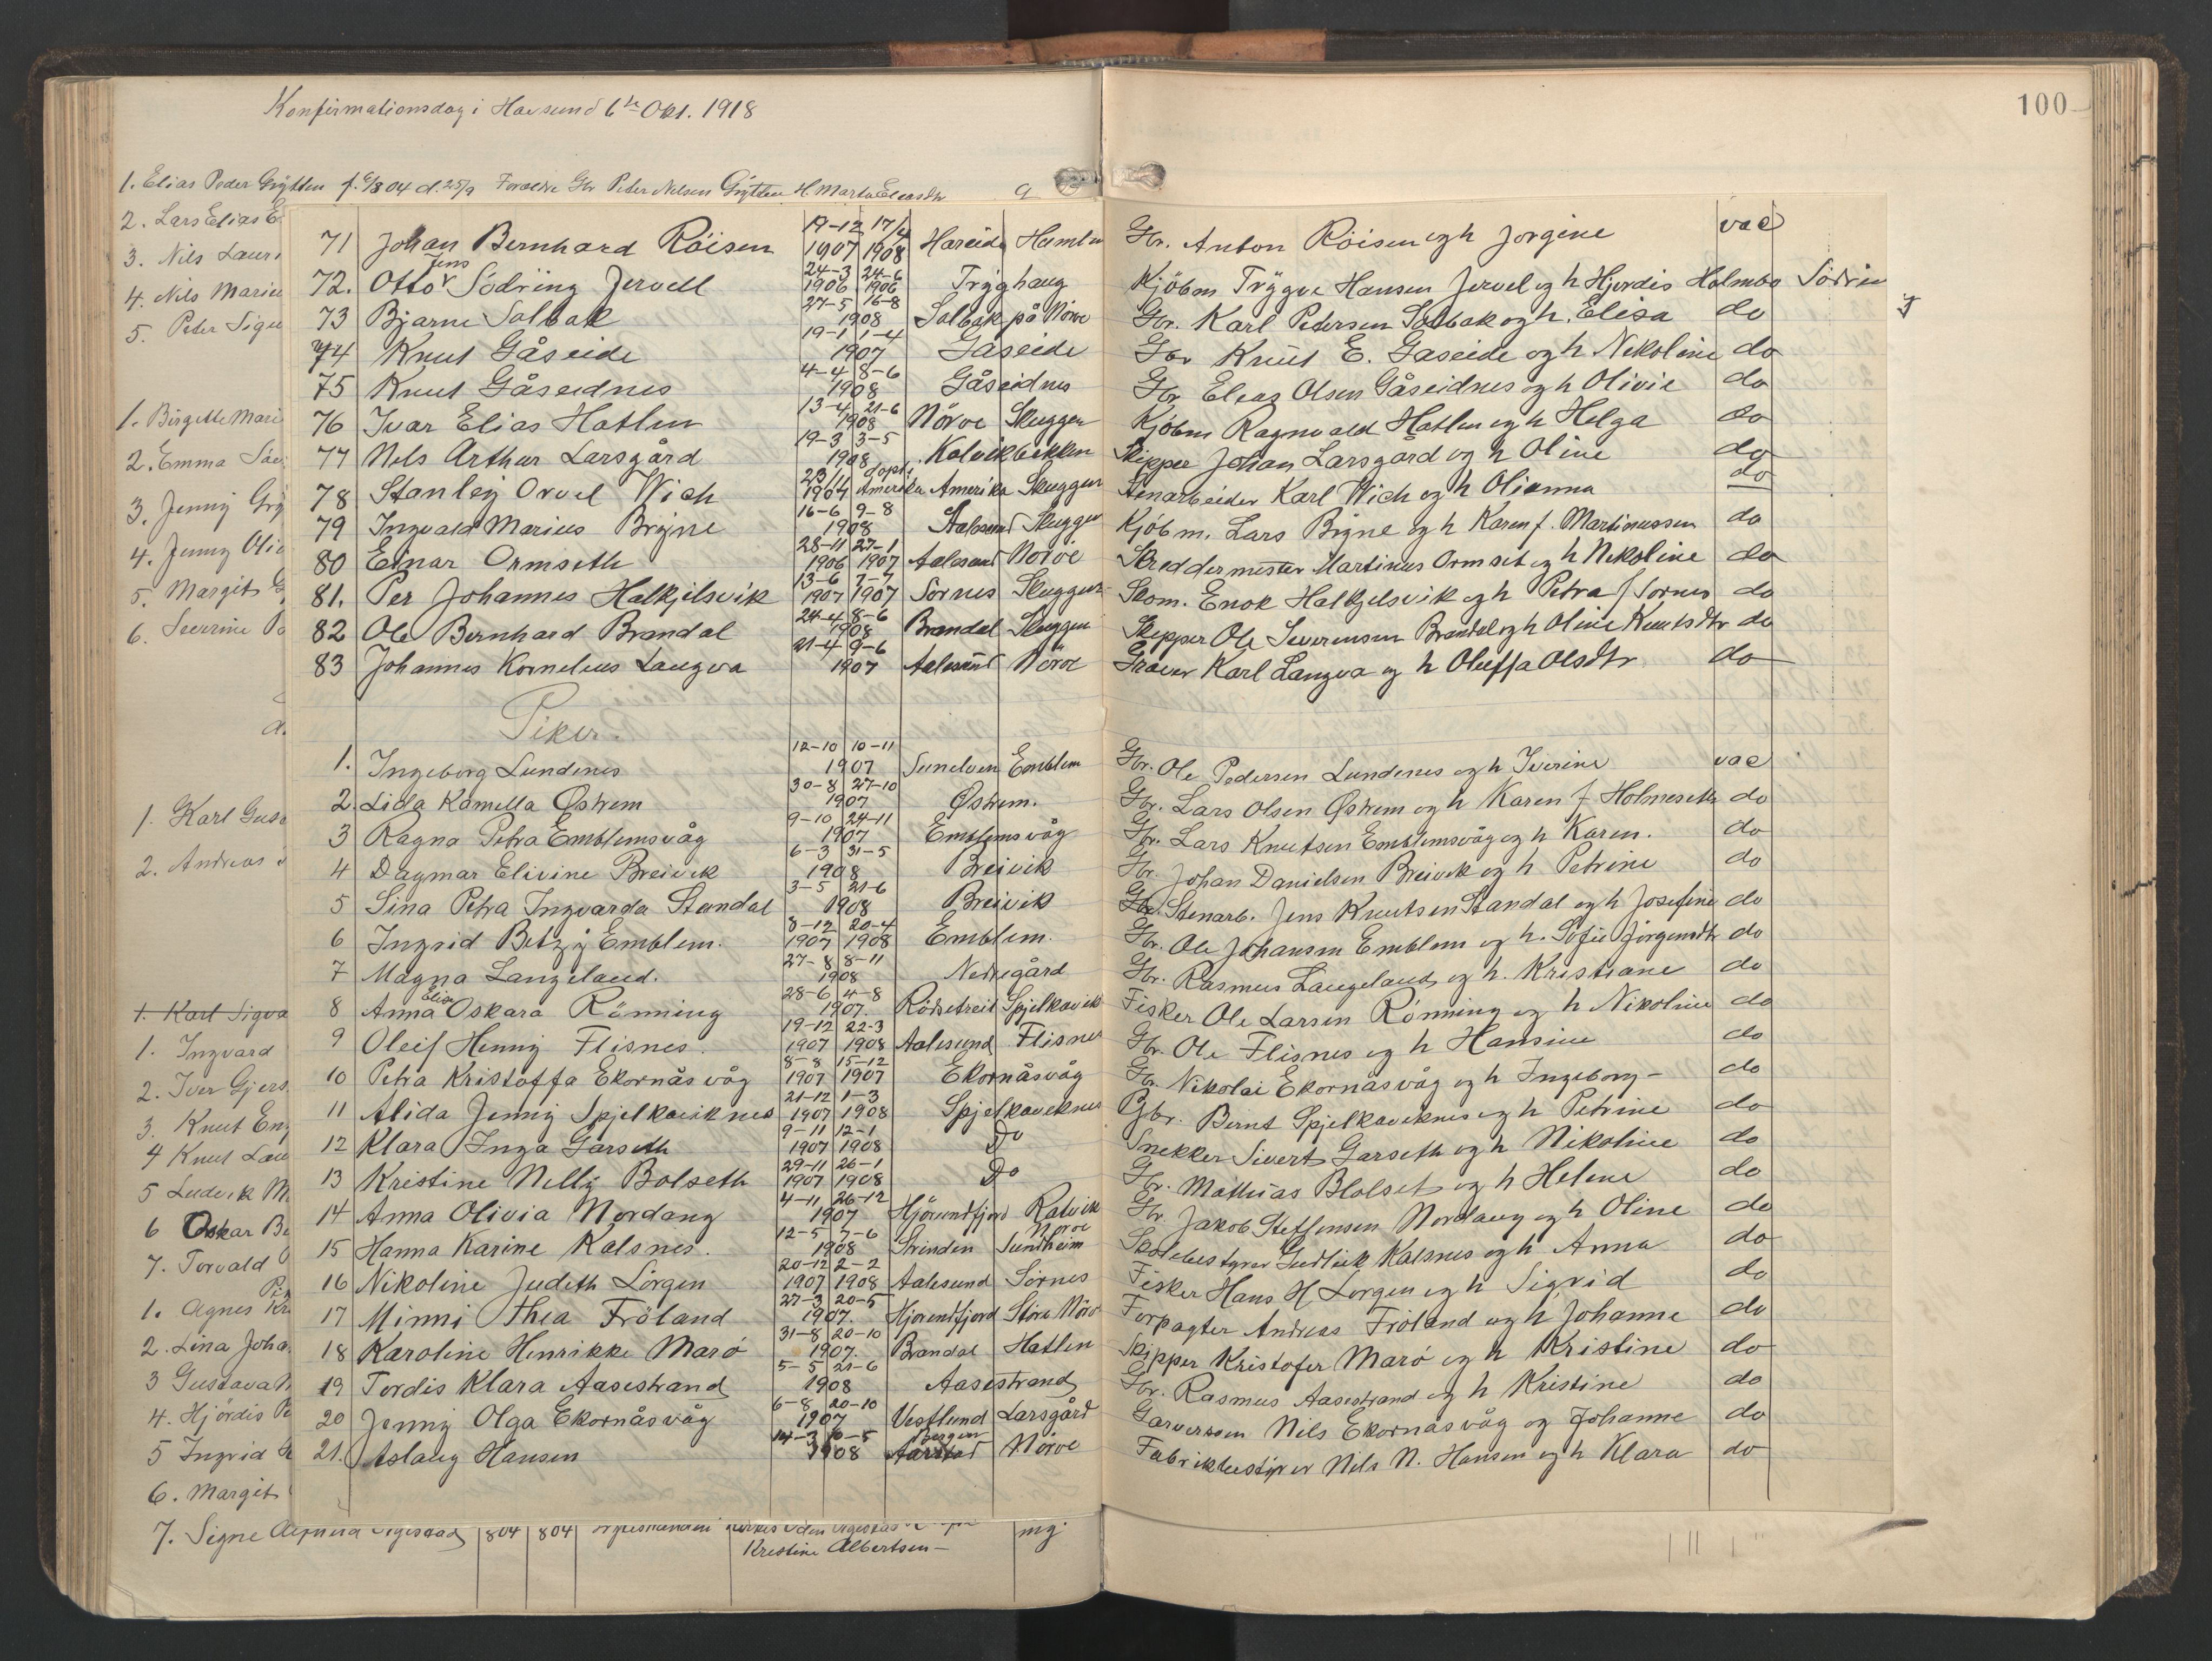 Konfirmationsdag i Havsund 6te Okt. 1918
100
1. Elias Peder Grytten f. 6/8 04 d. 25/9 Forældre Gbr Peter Nelsen Grytten H. Marta Eleasdtr g
2. Lars Elias
3. Nils Laur
4. Nils Marius
5. Peter Sigu
1. Birgitte Mari
2. Emma Sæv
3. Jenny Gry
4. Jenny Oliv
5. Margit G
6. Severine
1. Karl Gus
2. Andreas
1. Karl Sigva
1. Ingvard
2. Iver Gjers
3. Knut Eng
4 Knut Lau
5 Ludvik M
6 Oskar Be
7. Torvald
1. Agnes Kri
2. Lina Joha
3 Gustava
4. Hjördis Pe
5 Ingrid
6. Margit
71 Johan Bernhard Röisen 19-12 1907 17/4 1908 Hareide Humla Gbr. Anton Röisen og h Jorgine vac
72. Otto Jens Södring Jervell 24-3 1906 24-6 1906 Tryghaug Kjöbm Trÿgve Hansen Jervel og h Hjerdis Holmbo Södrin g
73 Bjarne Solbak 27-5 16-8 1908 Solbak på Nörve Gbr. Karl Petersen Solbak og h. Elisa do
74 Knut Gåseide 19-1 1-4 1907 Gåseide Gbr Knut E. Gaseide og h Nikoline do
75 Knut Gåseidnes 4-4 8-6 1908 Gåseidnes Gbr Eleas Olsen Gåseidnes og h Olivie do
76 Ivar Elias Hatlen 13-4 21-6 1908 Nörve Skuggen Kjöbm Ragnvald Hatlen og h Helga do
77 Nils Arthur Larsgård 19-3 3-5 1908 Kolvikbakken Skipper Johan Larsgård og h Oline do
78 Stanley Orvel Wich 23/11 1904 döpt i Amerika Amerika Skuggen Stenarbeider Karl Wich og h Olianna do
79 Ingvald Marius Brÿne 16-6 9-8 1908 Aalesund Skuggen Kjöbm. Lars Brÿne og h Karen f. Martinussen do
80 Einar Ormseth 28-11 1906 27-1 1907 Aalesund Nörve Skreddermester Martinus Ormset og h Nikoline do
81. Per Johannes Halkjelsvik 13-6 1907 7-7 1907 Sörnes Skuggen Skom. Enok Halkjelsvik og h Petra f Sornes do
82 Ole Bernhard Brandal 24-4 8-6 1908 Brandal Skuggen Skipper Ole Severinsen Brandal og h Oline Knutsdtr do
83 Johannes Kornelius Langva 21-4 9-6 1907 Aalesund Nörve Graver Karl Langva og h Oleffa Olsdtr do
Piker.
1. Ingeborg Lundenes 12-10 10-11 1907 Sunelven Emblem Gbr. Ole Pedersen Lundenes og h Iverine vac
2. Lida Kamilla Østrem 30-8 27-10 1907 Østrem. Gbr. Lars Olsen Østrem og h Karen f Holmeseth do
3 Ragna Petra Emblemsvåg 9-10 24-11 1907 Emblemsvåg Gbr. Lars Knutsen Emblemsvåg og h Karen. do
4 Dagmar Elivine Breivik 6-3 31-5 1908 Breivik Gbr. Johan Danielsen Breivik og h Petrine do
5 Sina Petra Ingvarda Standal 3-5 21-6 1908 Breivik Gbr. Stenarb. Jens Knutsen Standal og h Josefine do
6 Ingrid Betzÿ Emblem. 8-12 1907 20-4 1908 Emblem. Gbr. Ole Johansen Emblem og h. Sofie Jörgensdtr do
7 Magna Langeland. 27-8 8-11 1908 Nedregård Gbr. Rasmus Langeland og h. Kristiane do
8 Anna Elise Oskara Rönning 28-6 4-8 1907. Rödsetreit Spjelkavik Fisker Ole Larsen Rönning og h Nikoline do
9 Oleif Henny Flisnes. 19-12 1907 22-3 1908 Aalesund Flisnes Gbr. Ole Flisnes og h Hansine do
10 Petra Kristoffa Ekornåsvåg 8-8 1907 15-12 1907 Ekornåsvåg Gbr. Nikolai Ekornåsvåg og h Ingeborg- do
11 Alida Jenny Spjelkaviknes 21-12 1907 1-3 1908 Spjelkaviknes Gbr. Bernt Spjelkaviknes og h Petrine do
12 Klara Inga Garseth 9-11 1907 12-1 1908 Do Snekker Sivert Garseth og h Nikoline do
13 Kristine Nelly Bolseth 29-11 1907 26-1 1908 Do Gbr. Mathias Blolset og h Helene do
14 Anna Olivia Nordang 4-11 26-12 1907 Hjörundfjord Ratvik Gbr. Jakob Steffensen Nordang og h Oline do
15 Hanna Karine Kalsnes. 12-5 7-6 1908 Strinden Nörve Sundheim Skolebestyrer Gudleik Kalsnes og h Anna do
16 Nikoline Judith Lörgen 20-12 1907 2-2 1908 Aalesund Sörnes Fisker Hans H Lorgen og h Sigrid do
17 Minni Thea Fröland 27-3 20-5 1907. Hjorendfjord Store Nörve Forpagter Andreas Fröland og h Johanne do
18 Karoline Henrikke Marö 31-8 20-10 1907. Brandal Hatlen Skipper Kristofer Marö og h Kristine do
19 Tordis Klara Aasestrand 5-5 21-6 1908 Aasestrand Gbr. Rasmus Aasestrand og h Kristine do
20 Jenny Olga Ekornåsvåg 6-8 20-10 1907 Vestlund Larsgård Garversven Nils Ekornåsvåg og Johanne do
21. Aslaug Hansen 14-3 10-5 1908 Bergen Aarstad Nörve Fabrikbestÿrer Nils N. Hansen og h Klara do
7. Signe 804 804
Kristine Albertsen- mg.